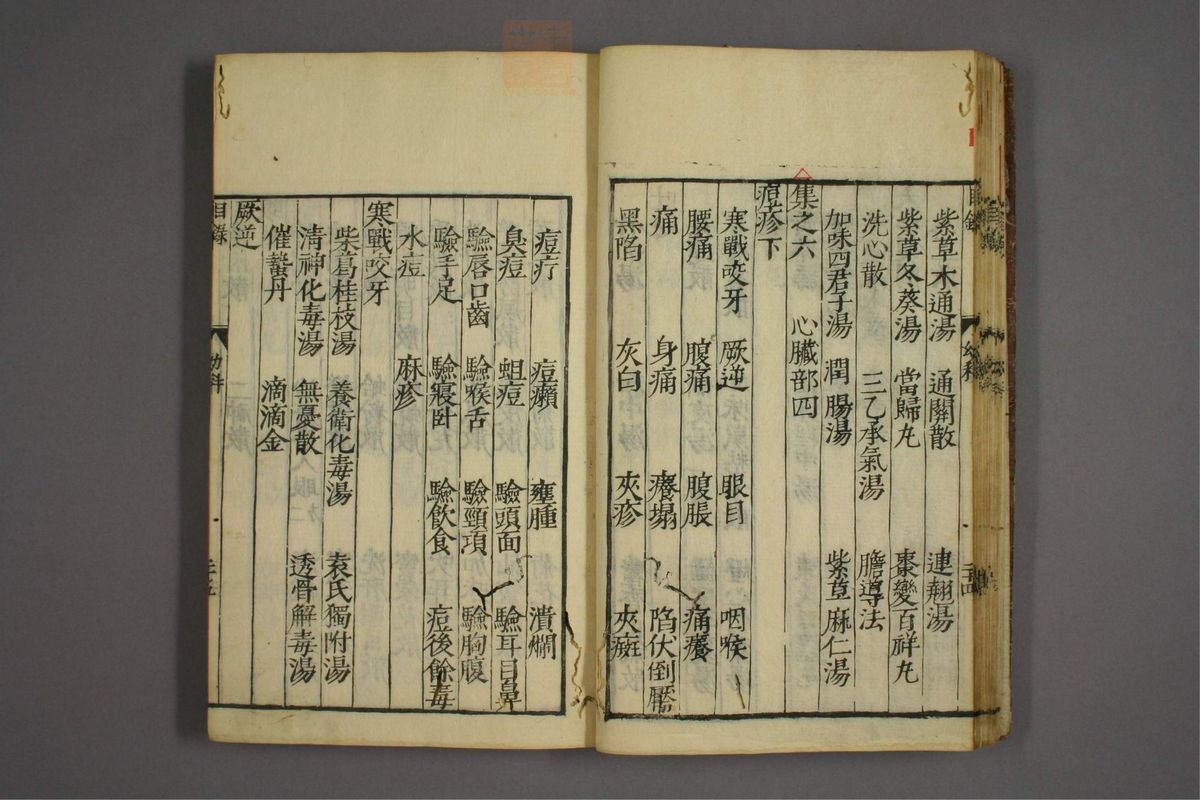 紫草木通湯 通關散 連翹湯
紫草冬葵湯 當歸丸 棗變百祥丸
洗心散 三乙承氣湯 膽導法
加味四君子湯 潤腸湯 紫草麻仁湯
集之六 心臟部四
痘疹下
寒戰咬牙 厥逆 眼目 咽喉
腰痛 腹痛 腹脹 痛癢
痛 身痛 癢塌 陷伏倒靨
黑陷 灰白 夾疹 夾癍
痘疔 痘癩 癰腫 潰爛
臭痘 蛆痘 驗頭面 驗耳目鼻
驗唇口齒 驗喉舌 驗頸項 驗胸腹
驗手足 驗寢臥 驗飲食 痘後餘毒
水痘 麻疹
寒戰咬牙
柴葛桂枝湯 養衛化毒湯 袁氏獨附湯
清神化毒湯 無憂散 透骨解毒湯
催蟄丹 滴滴金
厥逆
目錄 幼科